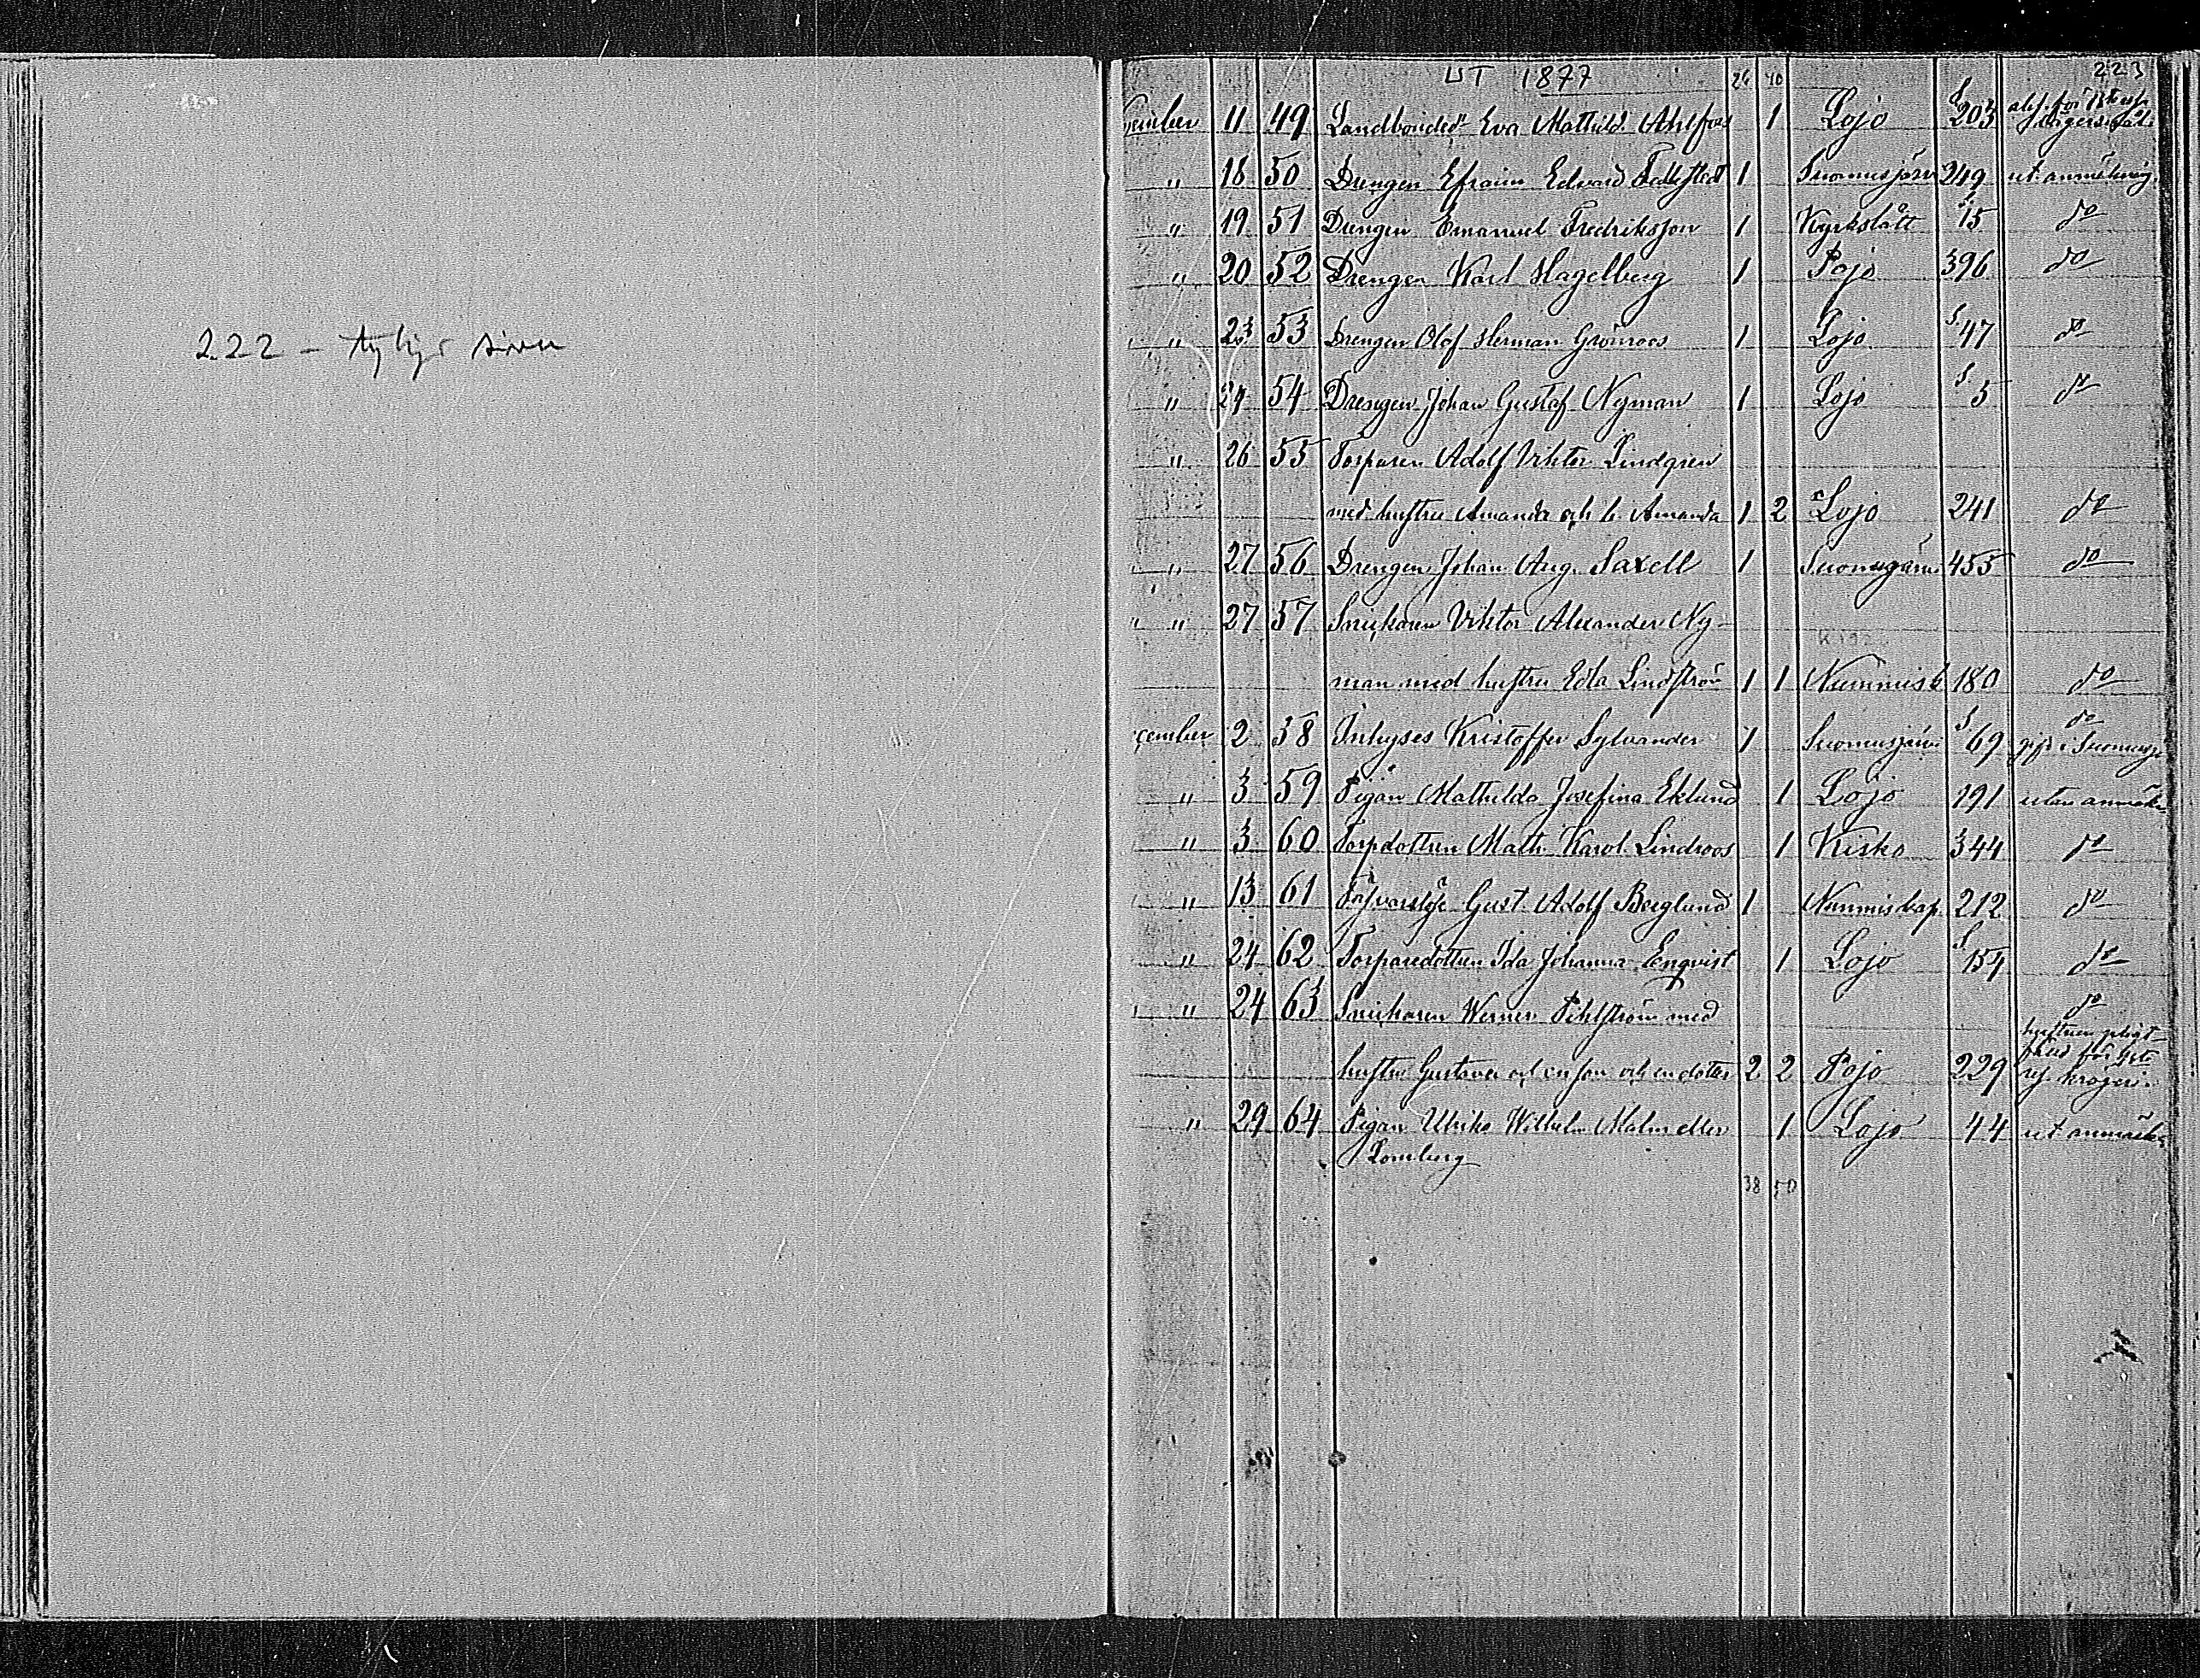 222 - tyhjä sivu
UT 1877 26 40 223
vember 11 49 Landbonded Eva Mathild. Ahlfors 1 Lojo S. 203
" 18 50 Drengen Efraim Edvard Fedkstedt 1 Suomusjärv 249 ut. anmälning.
" 19 51 Drengen Emanuel Fredriksson 1 Kyrkslätt S. 15 do
" 20 52 Drengen Karl Hagelberg 1 Pojo 396 do
" 23 53 Drengen Olof Herman Grönroos 1 Lojo S. 47 do
" 24 54 Drengen Johan Gustaf Nyman 1 Lojo S. 5 do
" 26 55 Torparen Adolf Viktor Lindgren
med hustru Amanda och b. Amanda 1 2 Lojo 241 do
" 27 56 Drengen Johan Aug. Saxell 1 Suomusjärvi 455 do
" 27 57 Snickaren Viktor Alexander Ny-
man med hustru Edla Lindström 1 1 Nummis k 180 do
cember 2 58 Inhyses Kristoffer Sylvander 1 Suomusjärvi S. 69 do
gift i Suomusj.
" 3 59 Pigan Mathilda Josefina Eklund 1 Lojo 191 utan anmäln.
" 3 60 Torpdottren Math. Karol. Lindroos 1 Kisko 344 do
" 13 61 Gust. Adolf Berglund 1 Nummis kap. 212 do
" 24 62 Torparedottren Ida Johanna Enqvist 1 Lojo S. 154 do
" 24 63 Snickaren Werner Pihlström med do
hustru Gustava och en son och en dotter 2 2 Pojo 229
hustrun pligt-
fälld för 1sta
" 29 64 Pigan Ulrika Wilhelm. Malm eller 1 Lojo 44 ut anmäln.
Lomberg
38 50